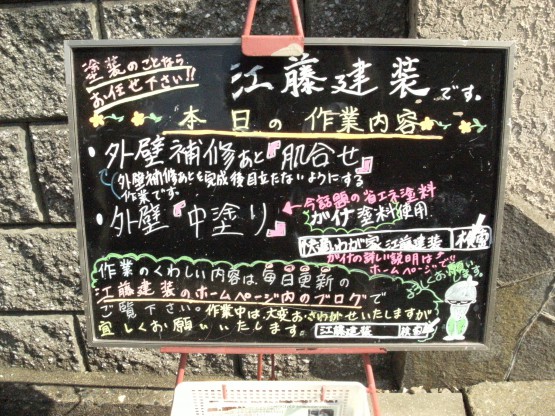 塗装のことなら
お任せ下さい!!
江藤建装です。
本日の作業内容
・外壁補修あと『肌合せ』
外壁補修あとを完成後目立たないようにする
作業です。
・外壁『中塗り』
←今話題の省エネ塗料
ガイナ塗料使用
快適わが家 江藤建装 検索
ガイナの詳しい説明は
ホームページで!!
作業のくわしい内容は、毎日更新の
江藤建装のホームページ内のブログで
ご覧下さい。作業中は大変おさわがせいたしますが
宜しくお願いいたします。
江藤建装 検索
よろしくお願い
します。